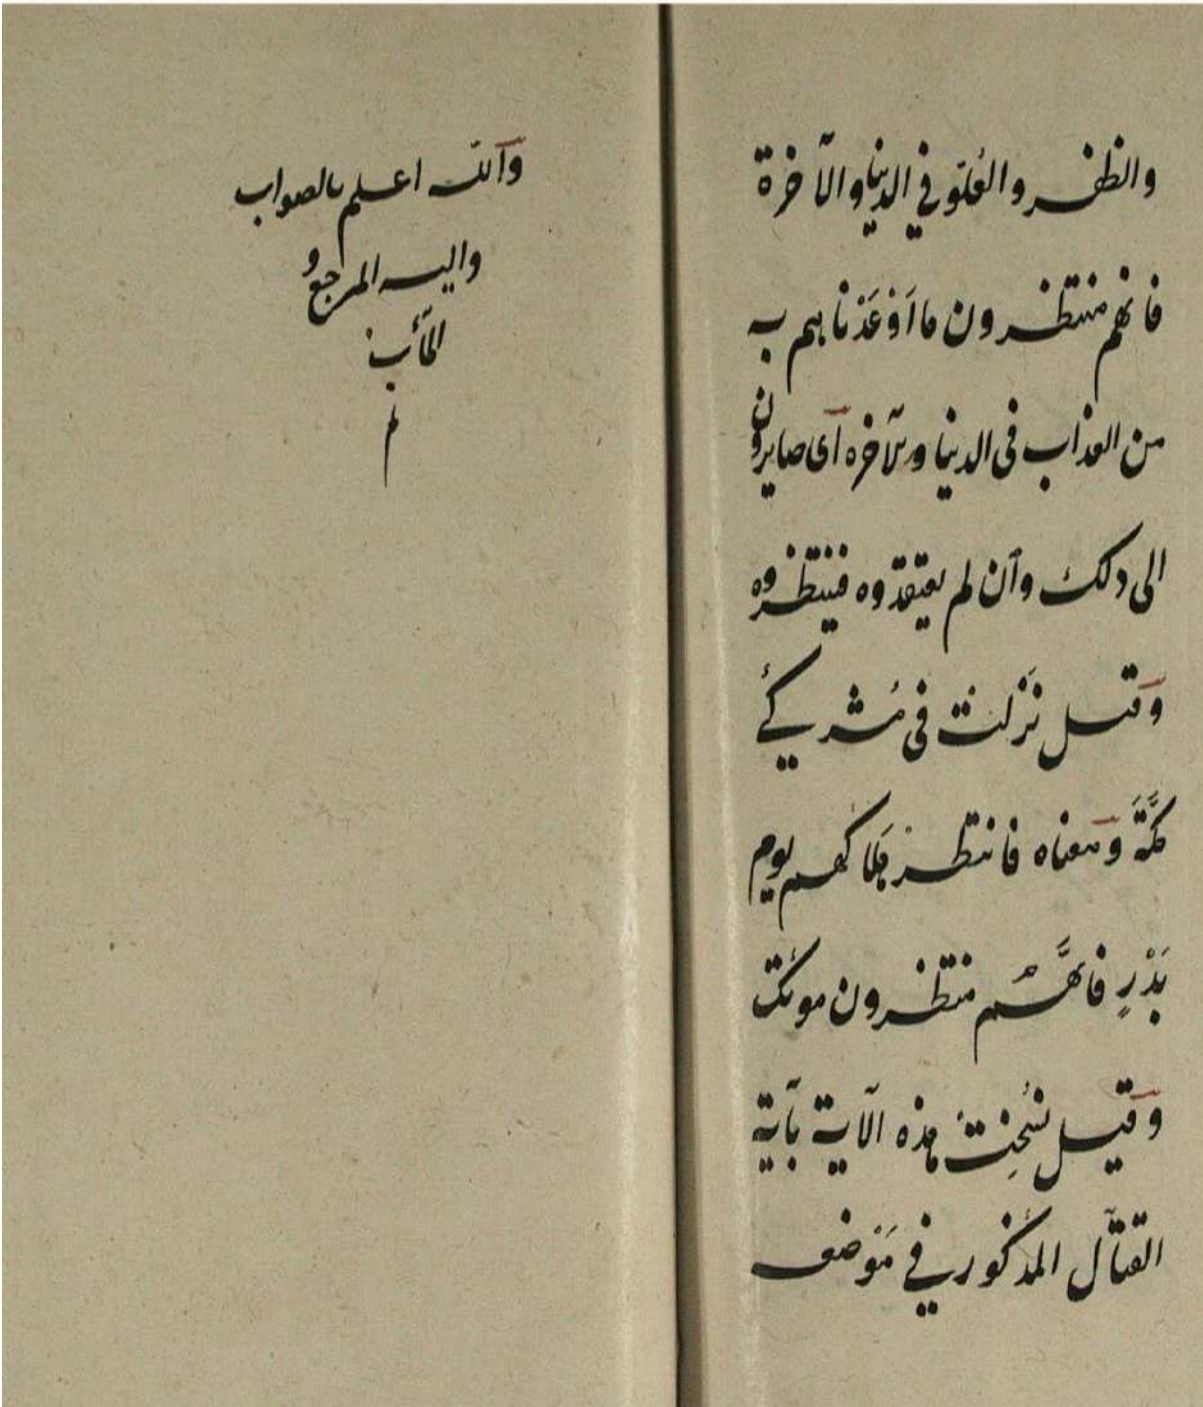 والظفر والعُلوّ في الدنيا والآخرة
فانهم منتظرون ما اَوْعَدْنا بهم به
من العذاب فى الدنيا والآخره آى صايرون
الى ذلك وآن لم يعتقدوه فينتظروه
وَقيل نَزَلت فى مُشركي
مكَّةَ وَمعناه فانتظر هَلاكهم يوم
بَدْرٍ فانهَّم منتظرون موتك
وَقيل نُسِخت هذه الآية بآية
القتال المذكور في مَوْضعه
وَالله اعلم بالصواب
واليه المرجع و
المآب
م